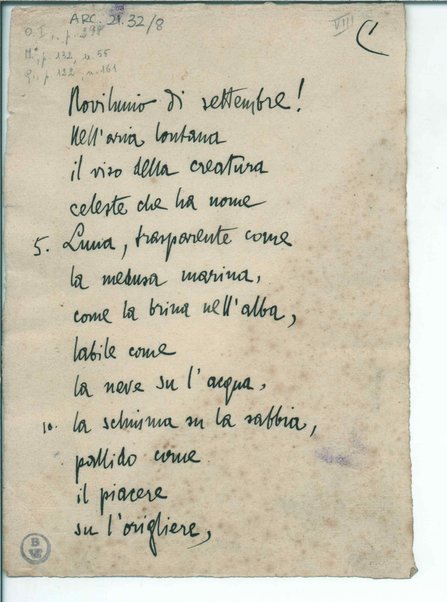 ARC. 21.32/8
VIII
O. I, p. 298
M., p. 132, n. 55
G., p. 122, n. 161
Novilunio di settembre!
Nell'aria lontana
il viso della creatura
celeste che ha nome
5. Luna, trasparente come
la medusa marina,
come la brina nell'alba,
labile come
la neve su l'acqua,
10. la schiuma su la sabbia,
pallido come
il piacere
su l'origliere,
B